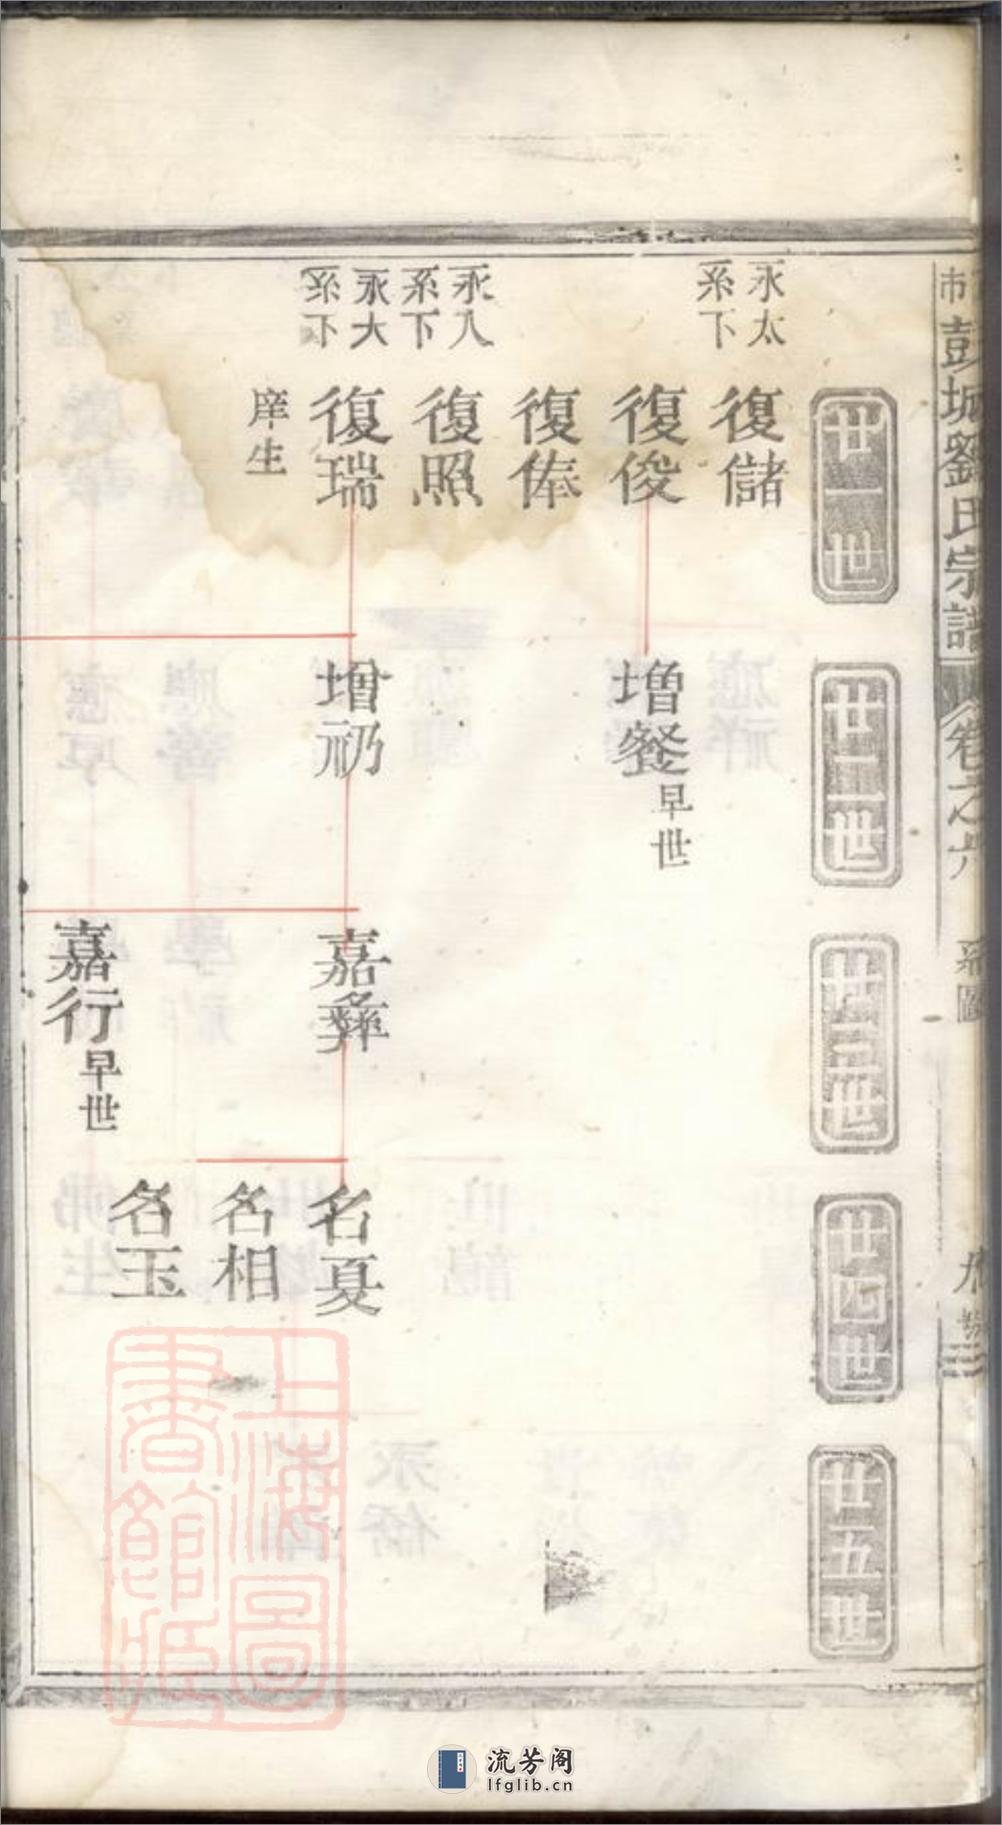 彭城劉氏宗譜
卷之六
系圖
九
廿一世
廿二世
廿三世
廿四世
廿五世
永太
系下
復儲
復俊
復俸
永八
系下
復照
永大
系下
復瑞
庠生
增餐
早世
增礽
嘉彝
嘉行
早世
名夏
名相
名玉
上海圖
書館藏
流芳阁
lfglib.cn